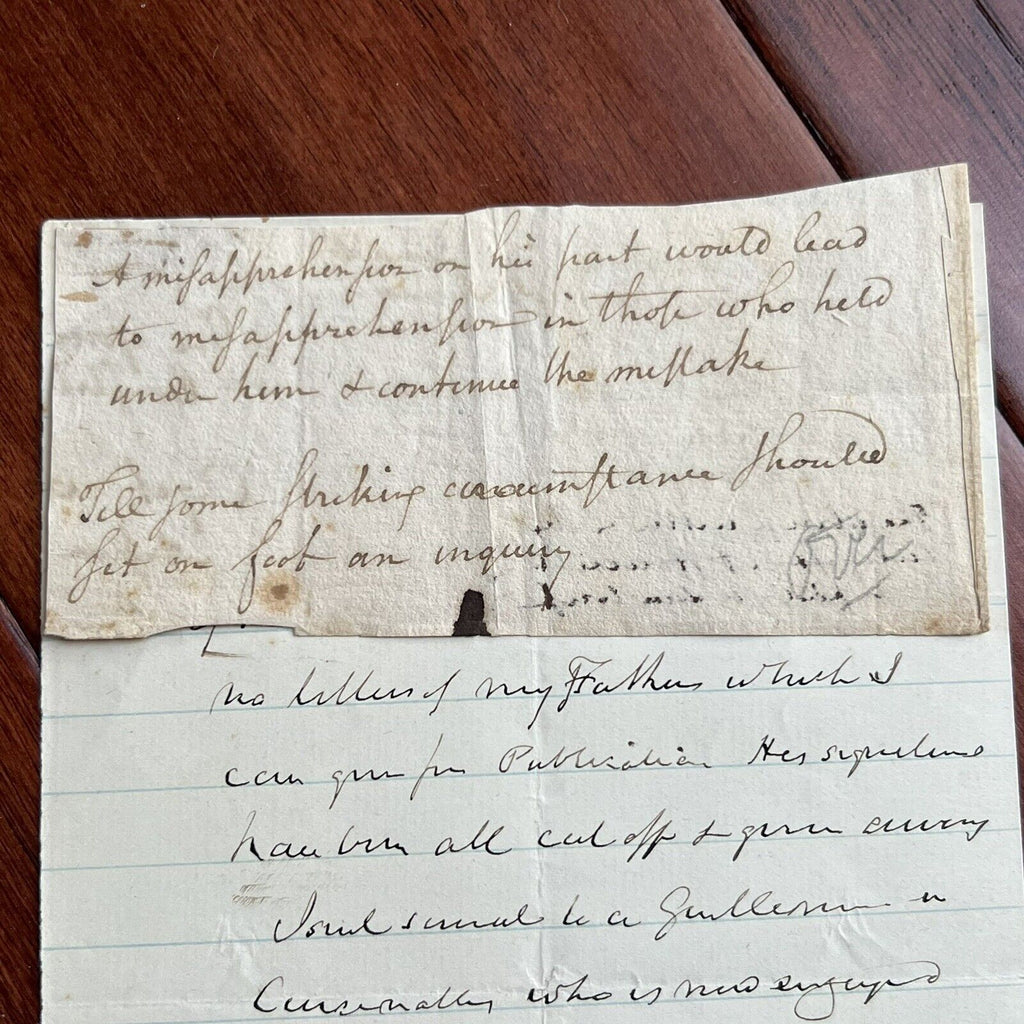 A misapprehension on his part would lead
to misapprehension in those who held
under him & continue the mistake
Till some striking circumstance should
set on foot an inquiry
no letters of my Father which I
can give for Publication His signatures
have been all cut off & given away
I sent several to a Gentleman in
who is now engaged